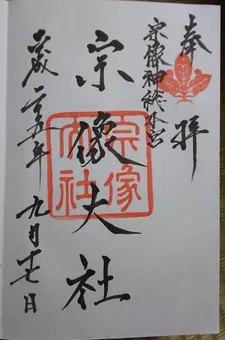 奉拝
宗像神総本宮
宗像大社
宗像
大社
平成二五年九月十七日